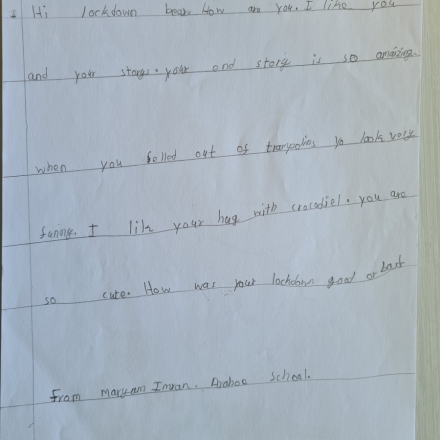 Hi lockdown bear. How are you. I like you
and your story. your and story is so amaizing.
when you felled out of trampolins yo look very
funing. I lik your hug with crocodiel. you are
so cute. How was your lockdown good or bad
From Maryam Imran. School.